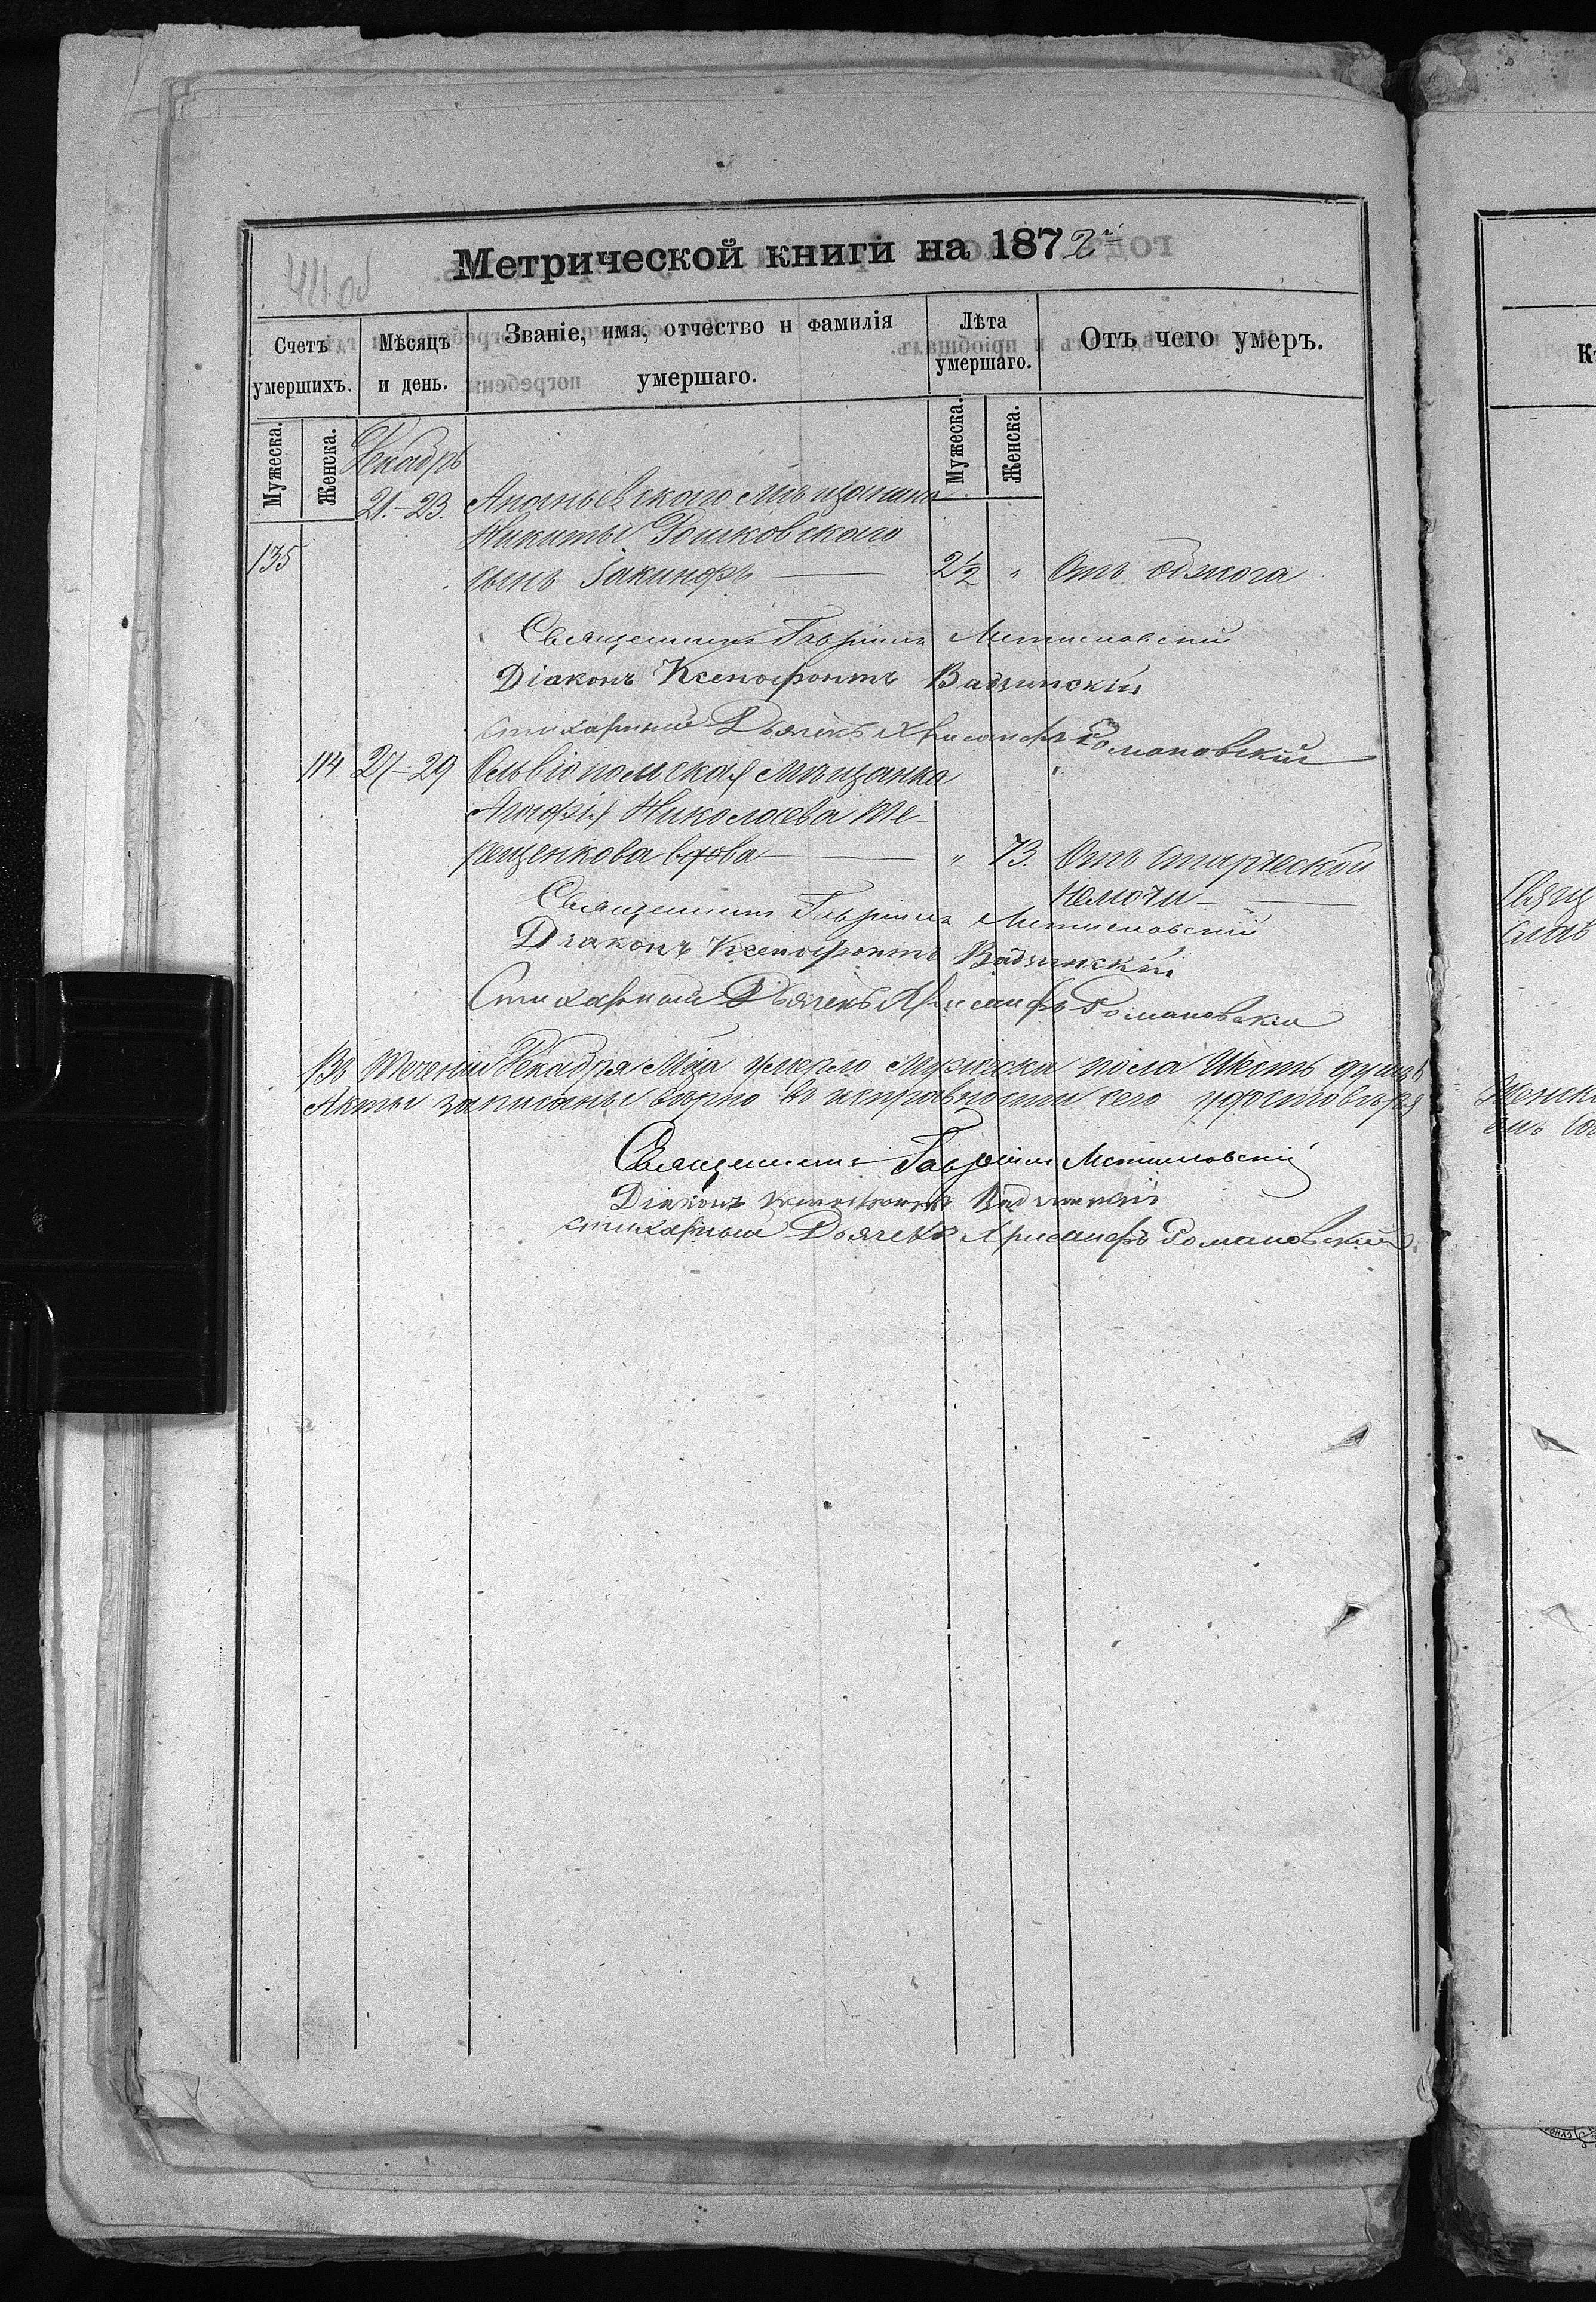 Метрической книги на 1872й
Счетъ умершихъ.
Мѣсяцъ и день.
Званіе, имя, отчество и фамилія умершаго.
Лѣта умершаго.
Отъ чего умеръ.
Мужеска.
Женска.
Мужеска.
Женска.
Декабрь
21.-23. Ананьевскаго мѣщанина
Никиты Гошковскаго
135 сынъ Іакинфъ — 2½ " Отъ обжога
Священникъ Гавріилъ Мстиславскій
Діаконъ Ксенофонтъ Вадзинскій
стихарный Дьячекъ Хрисанфъ Романовскій
114 27-29 Ольвіопольская мѣщанка
Агафія Николаева Те-
рещенкова вдова — " 73. Отъ старческой
немочи —
Священникъ Гавріилъ Мстиславскій
Діаконъ Ксенофонтъ Вадзинскій
Стихарный Дьячекъ Хрисанфъ Романовскій
Въ теченіи Декабря мца умерло мужеска пола шесть душъ
Акты записаны вѣрно въ исправности сего удостовѣря
Священникъ Гавріилъ Мстиславскій
Діаконъ Ксенофонтъ Вадзинскій
стихарный Дьячекъ Хрисанфъ Романовскій
Свящ
Женск